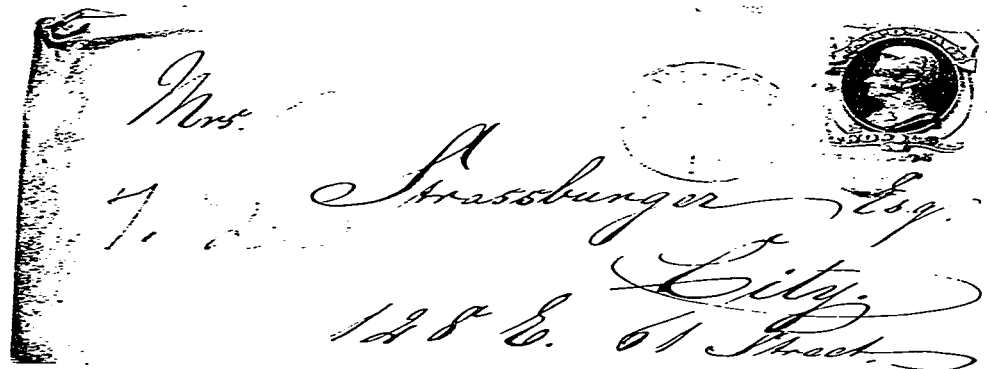 Mrs.
Strassburger Esq.
City.
128 E. 61 Street.